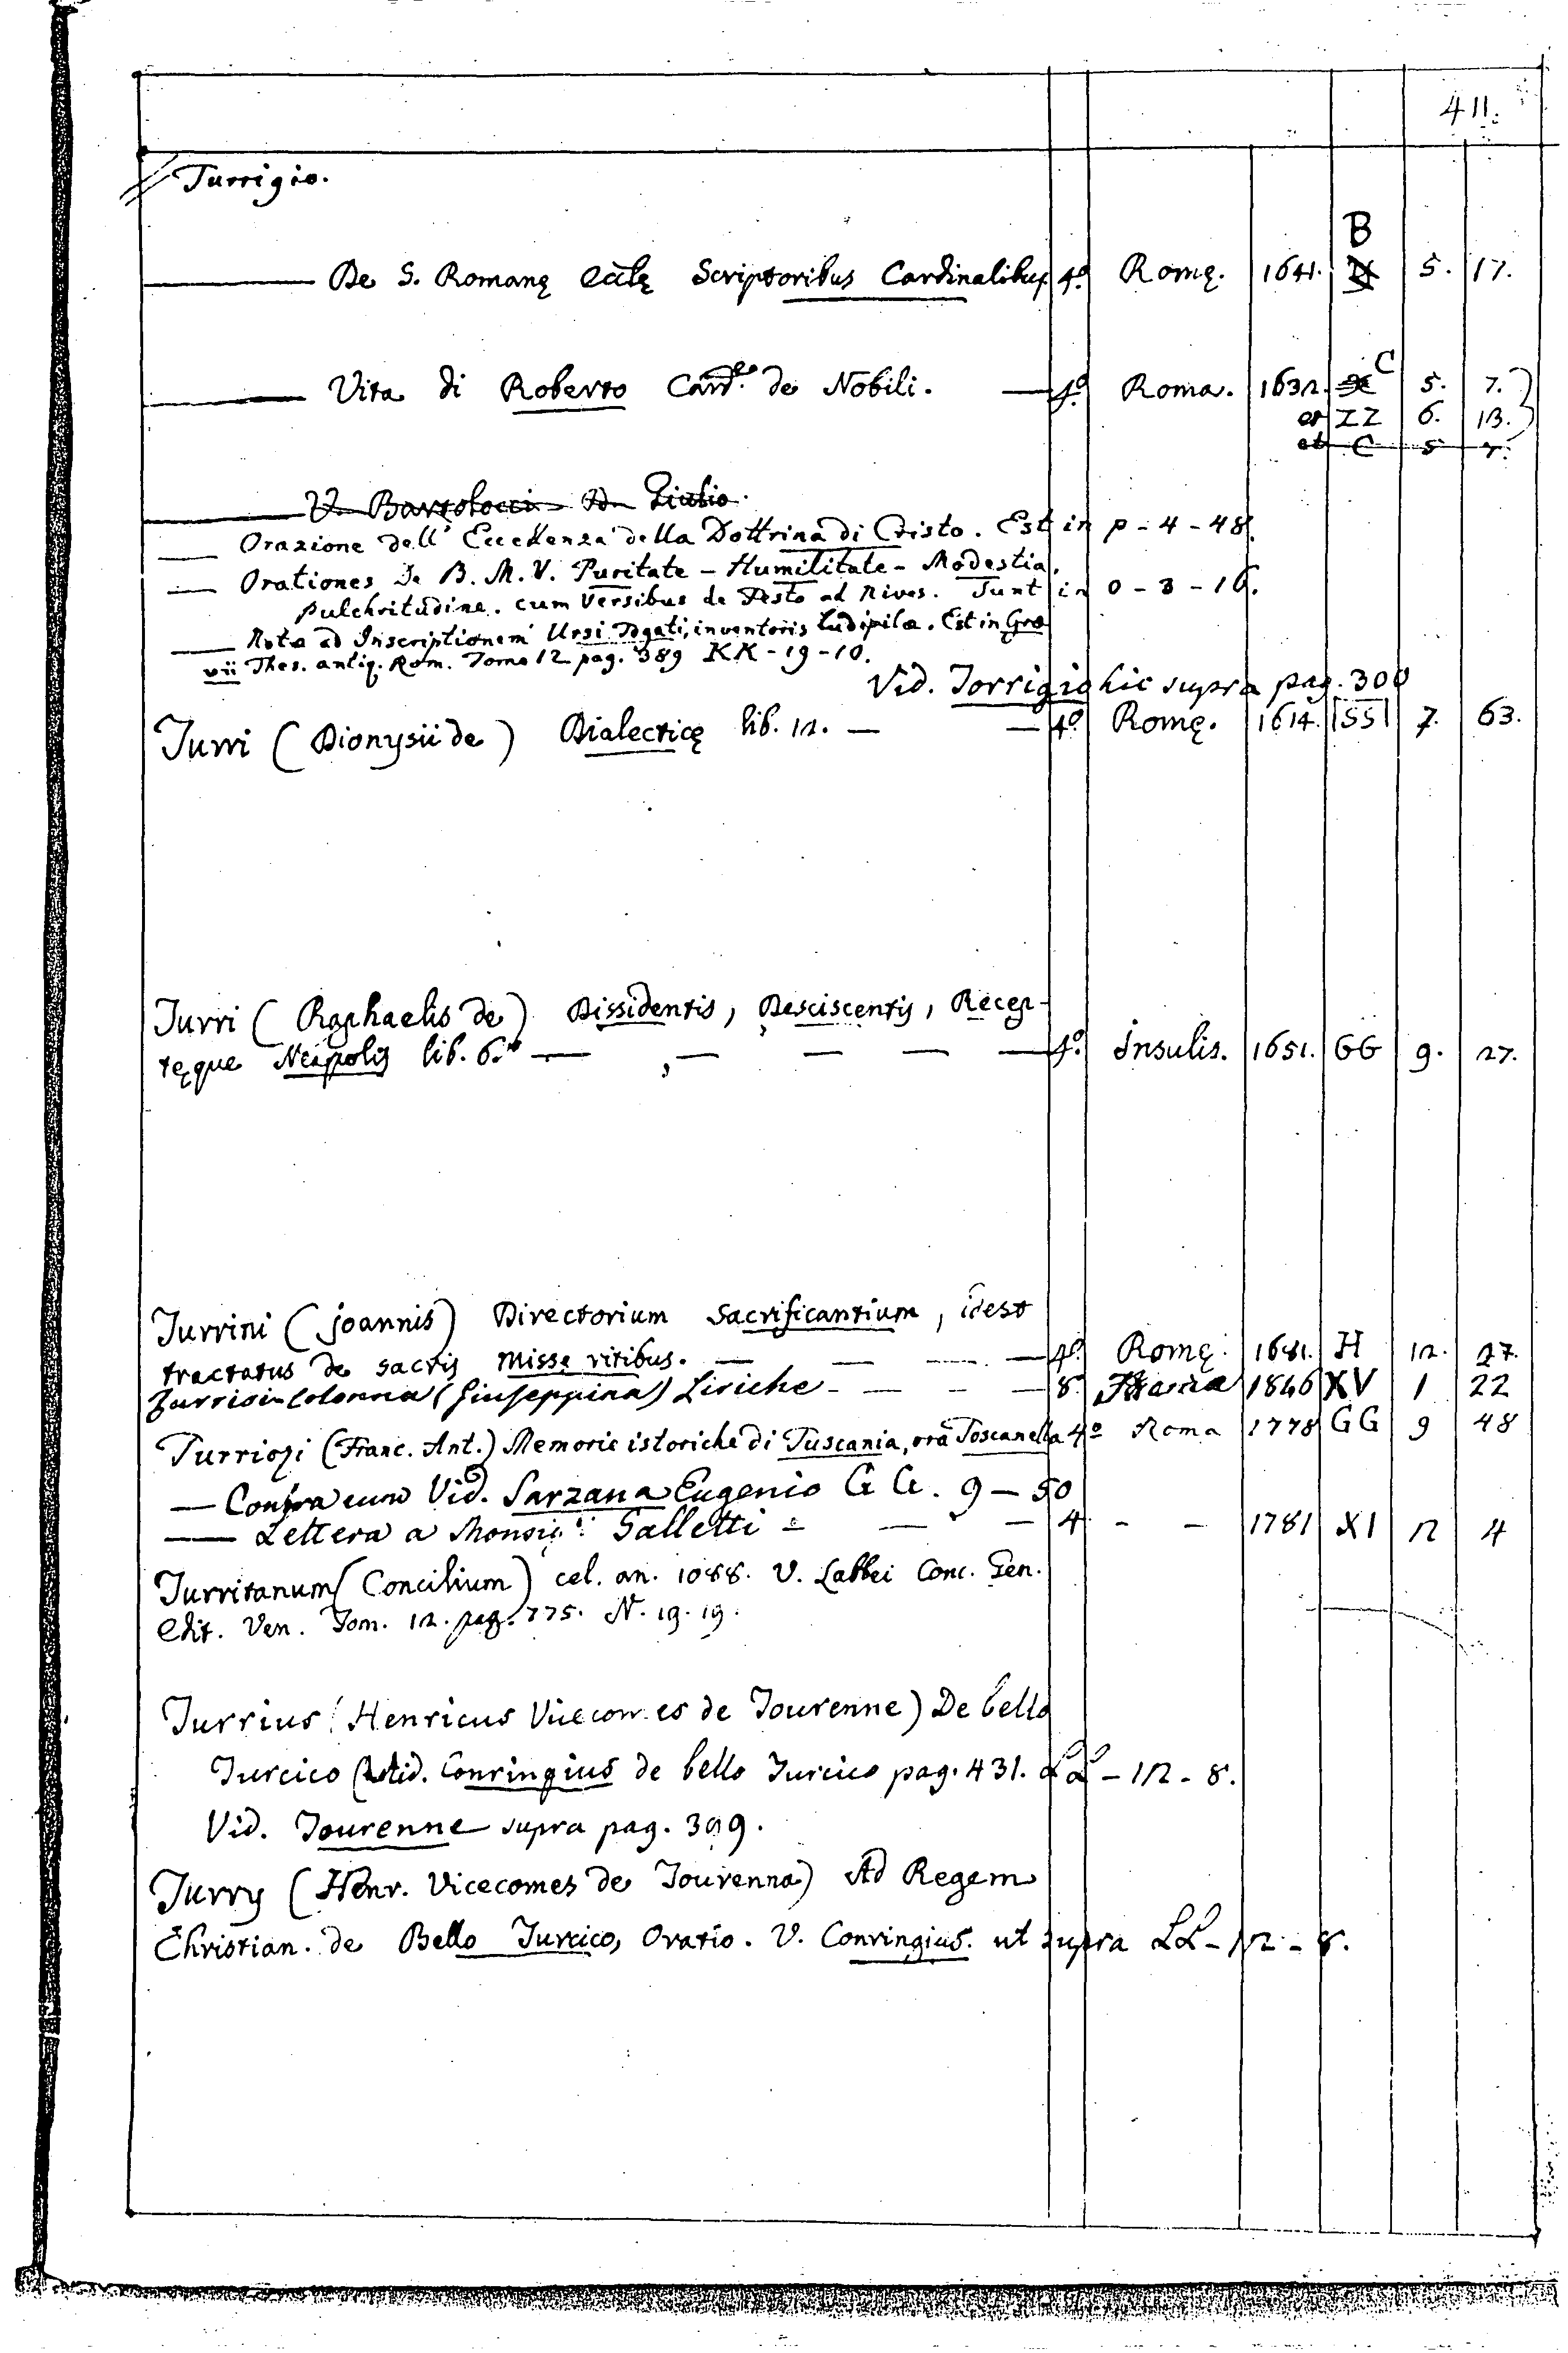 411.
Turrigio.
—— De S. Romanę Ecclę Scriptoribus Cardinalibus 4.º Romę. 1641. B 5. 17.
—— Vita di Roberto Card.le de Nobili. — 4.º Roma. 1632. C 5. 7.
et ZZ 6. 13.
et C 5 7.
—— V. Bartolocci D. Giulio.
—— Orazione dell' Eccellenza della Dottrina di Cristo. Est in P - 4 - 48.
—— Orationes De B. M. V. Puritate - Humilitate - Modestia,
pulchritudine. cum Versibus de Festo ad Nives. Sunt in O - 3 - 16.
—— Nota ad Inscriptionem Ursi Togati, inventoris ludi pilæ. Est in Græ
vii Thes. antiq. Rom. Tomo 12 pag. 389 KK - 19 - 10.
Vid. Torrigio hic supra pag. 300
Turri (Dionysii de) Dialecticę lib. 12. — — 4.º Romę. 1614. SS 7. 63.
Turri (Raphaelis de) Dissidentis, Desciscentis, Recep-
tęque Neapolis lib. 6. — — — — — 4.º Insulis. 1651. GG 9. 27.
Turrini (Joannis) Directorium Sacrificantium, idest
tractatus de sacris Missę ritibus. — — — — 4.º Romę. 1681. H 12. 27.
Turrisi-Colonna (Giuseppina) Liriche - — - — 8. 1846 XV 1 22
Turriozi (Franc. Ant.) Memorie istoriche di Tuscania, ora Toscanella 4º Roma 1778 GG 9 48
— Contra eum Vid. Sarzana Eugenio GG. 9 — 50
—— Lettera a Monsig.r Galletti - — — 4 - - 1781 XI 12 4
Turritanum (Concilium) cel. an. 1088. V. Labbei Conc. Gen.
Edit. Ven. Tom. 12. pag. 775. N. 19. 19.
Turrius (Henricus Vicecomes de Tourenne) De bello
Turcico Vid. Conringius de bello Turcico pag. 431. LL - 12 - 8.
Vid. Tourenne supra pag. 399.
Turry (Henr. Vicecomes de Tourenna) Ad Regem
Christian. de Bello Turcico, Oratio. V. Conringius. ut supra LL - 12 - 8.